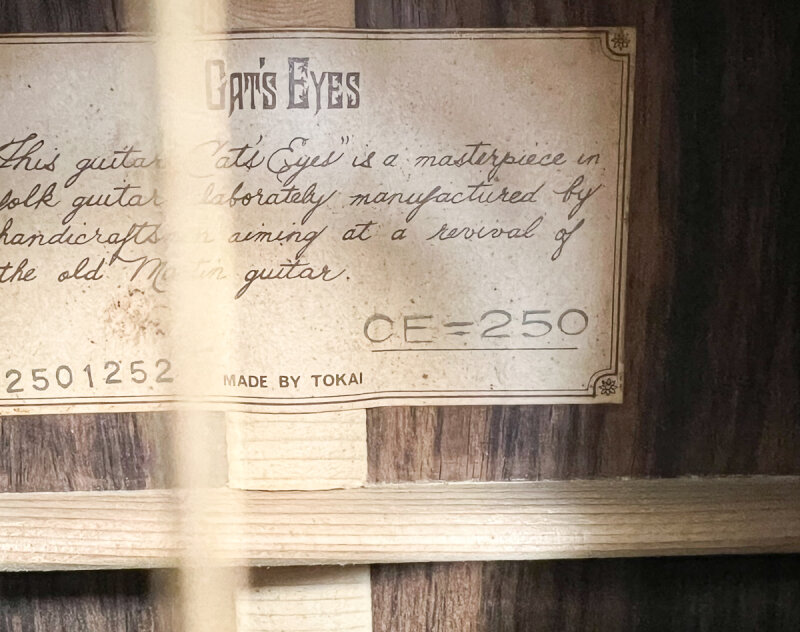 CAT'S EYES
This guitar "Cat's Eyes" is a masterpiece in
folk guitar elaborately manufactured by
handicraftsmen aiming at a revival of
the old Martin guitar.
CE=250
2501252
MADE BY TOKAI